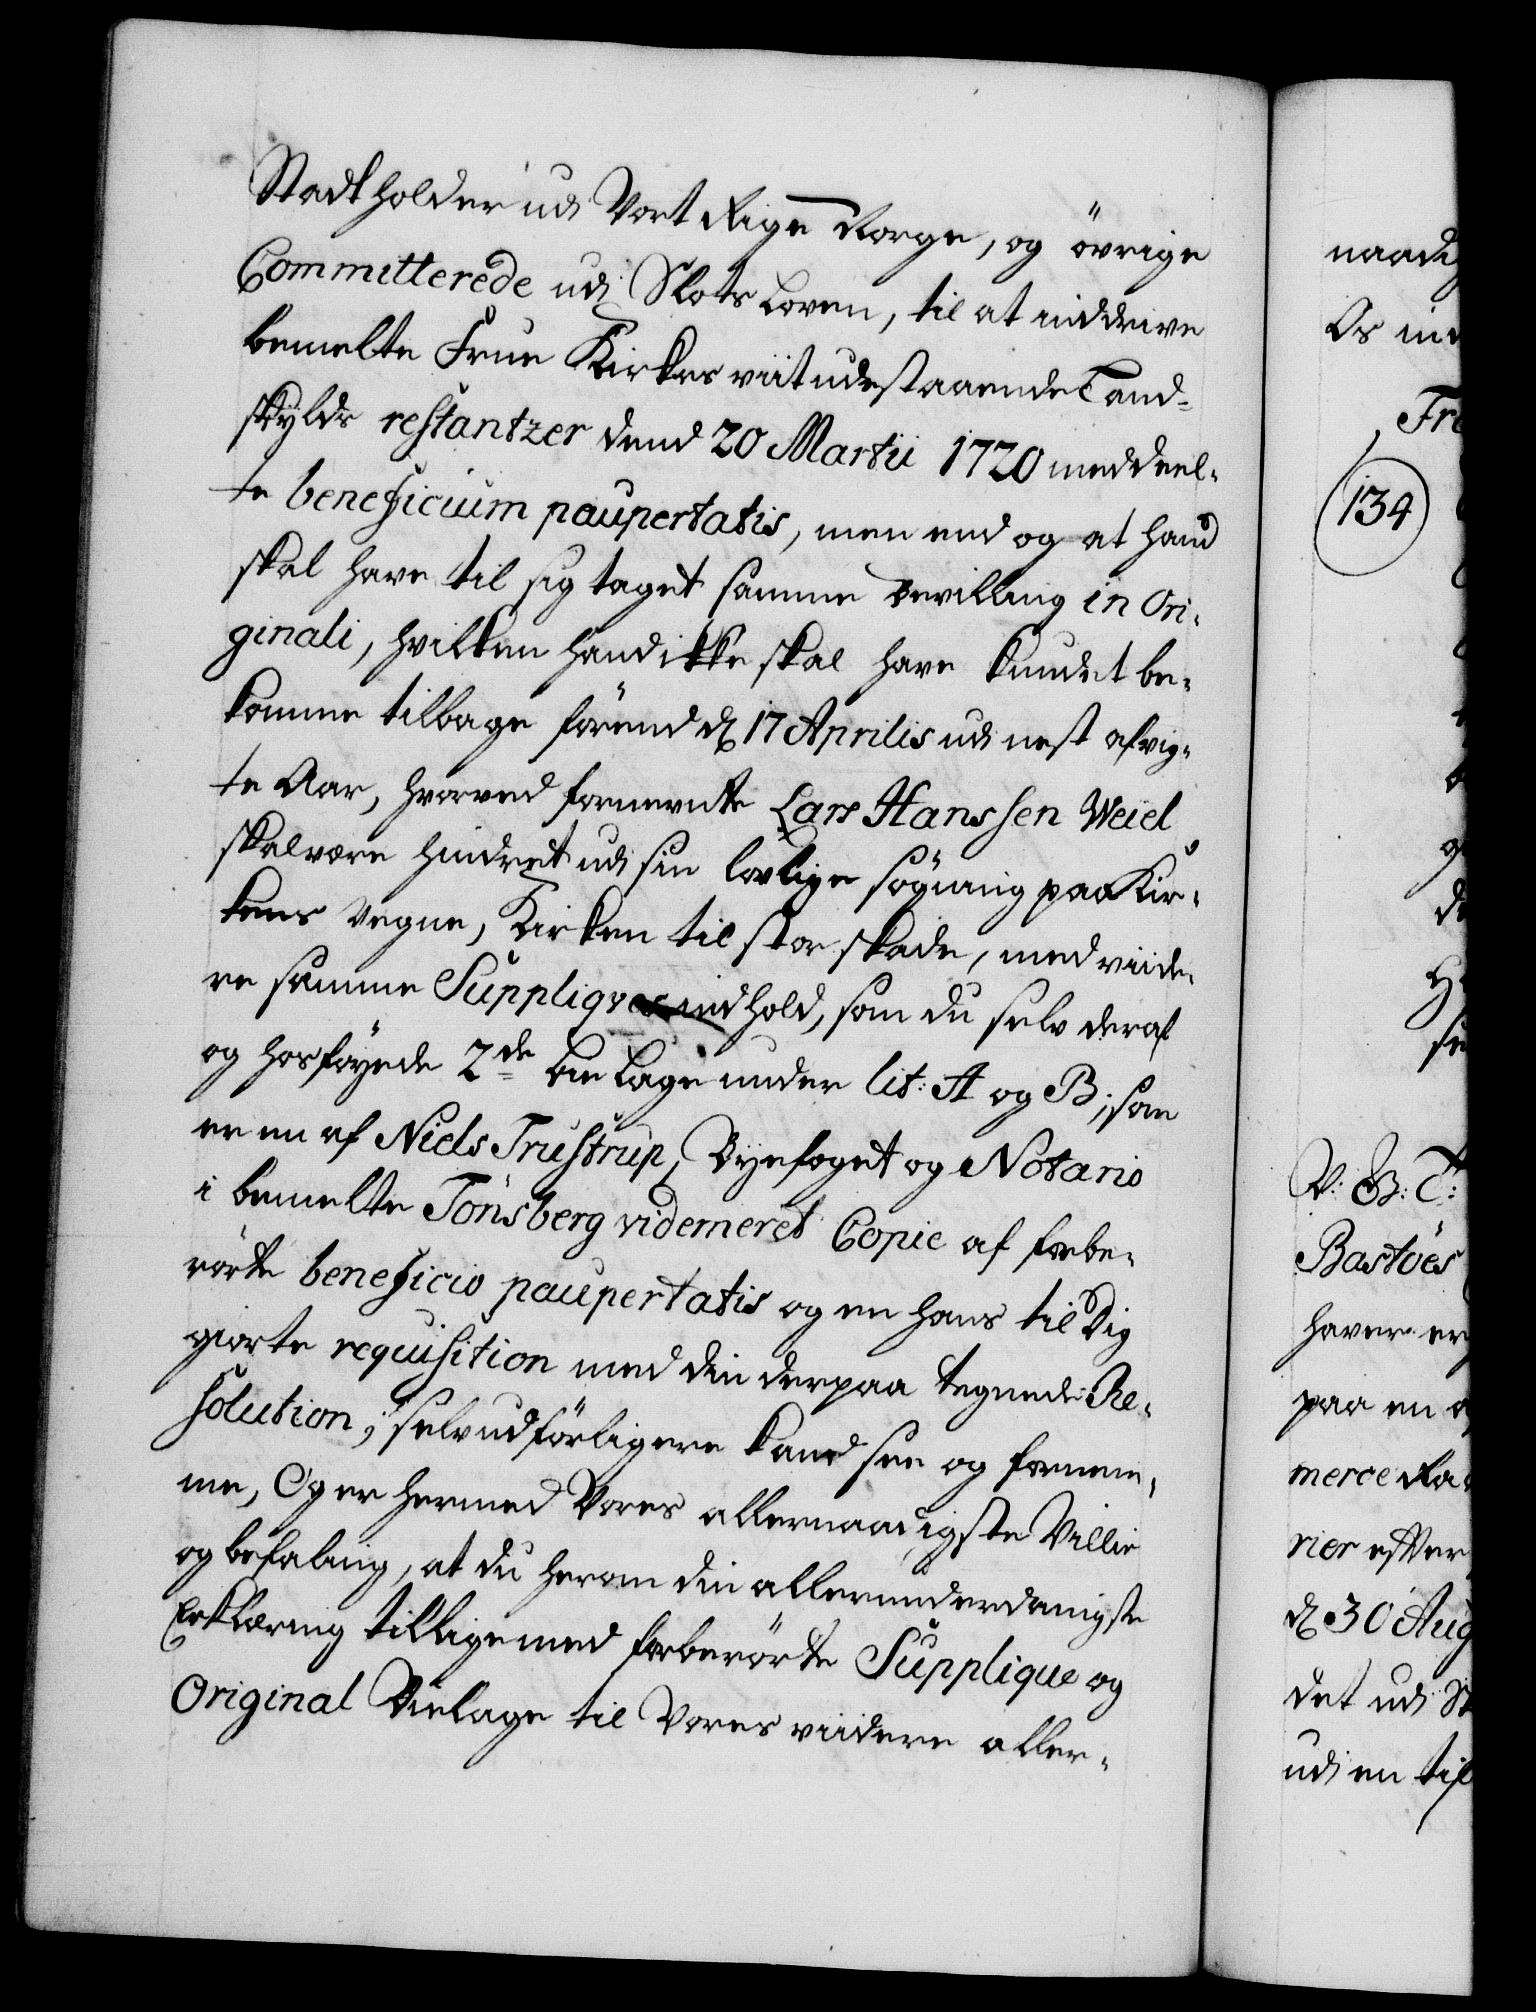 Stadtholder udi Vort Rige Norge, og övrige
Committerede udi Slots Loven, til at inddrive
bemelte Frue Kirkes viit udestaaende Land-
skylds restantzer dend 20 Martii 1720 meddeel-
te beneficium paupertatis, men end og at hand
skal have til sig taget samme bevilling in Ori-
ginali, hvilken hand ikke skal have kundet be-
komme tilbage förend d 17 Aprilis udi nest afvig-
te Aar, hvorved fornevnte Lars Hanssen Weiel
skal være hindret udi sin lovlige sögning paa Kir-
kens vegne, Kirken til stor skade, med viide-
re samme Suppliqves indhold, som du selv deraf
og hosföyede 2de bielage under lit: A og B; som
er en af Niels Trustrup, Byefoget og Notario
i bemelte Tönsberg videmeret Copie af forbe-
rörte beneficio paupertatis og en hans til Dig
giorte requisition med din derpaa tegnede Re-
solution; selv udförligere kand see og fornem-
me, Og er hermed Vores allernaadigste Villie
og befaling, at du herom din allerunderdanigste
Erklæring tillige med forberörte Supplique og
Original Bielage til Vores viidere aller-
naadig
Os in
Fre
134
V: G: T:
Bastöes
haver er
paa en
merce Ra
rier efter
d 30 Aug
det udi St
udi en til